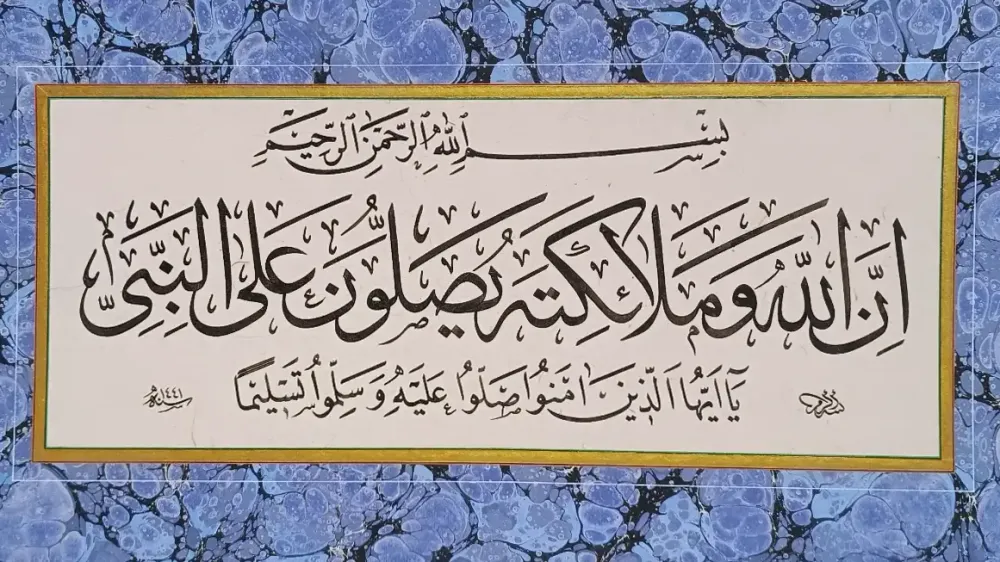 بِسْمِ ٱللَّهِ ٱلرَّحْمَٰنِ ٱلرَّحِيمِ
اِنَّ اللّٰهَ وَمَلَائِكَتَهُ يُصَلُّونَ عَلَى النَّبِىِّ
يَآ اَيُّهَا الَّذِينَ اٰمَنُوا صَلُّوا عَلَيْهِ وَسَلِّمُوا تَسْلِيمًا
سنه ١٤٤١